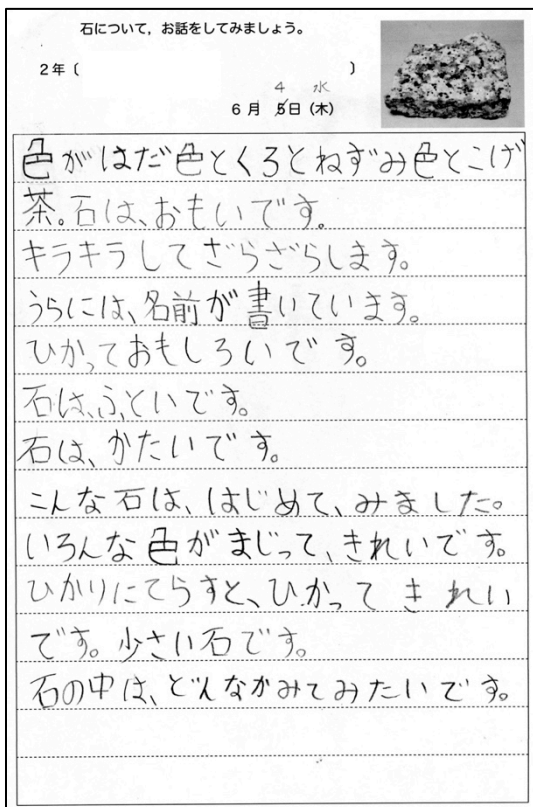 石について，お話をしてみましょう。
2年〔　　　　〕
4 水
6月 5日（木）
色がはだ色とくろとねずみ色とこげ
茶。石は、おもいです。
キラキラしてざらざらします。
うらには、名前が書いています。
ひかっておもしろいです。
石は、ふといです。
石は、かたいです。
こんな石は、はじめて、みました。
いろんな色がまじって、きれいです。
ひかりにてらすと、ひかってきれい
です。少さい石です。
石の中は、どんなかみてみたいです。